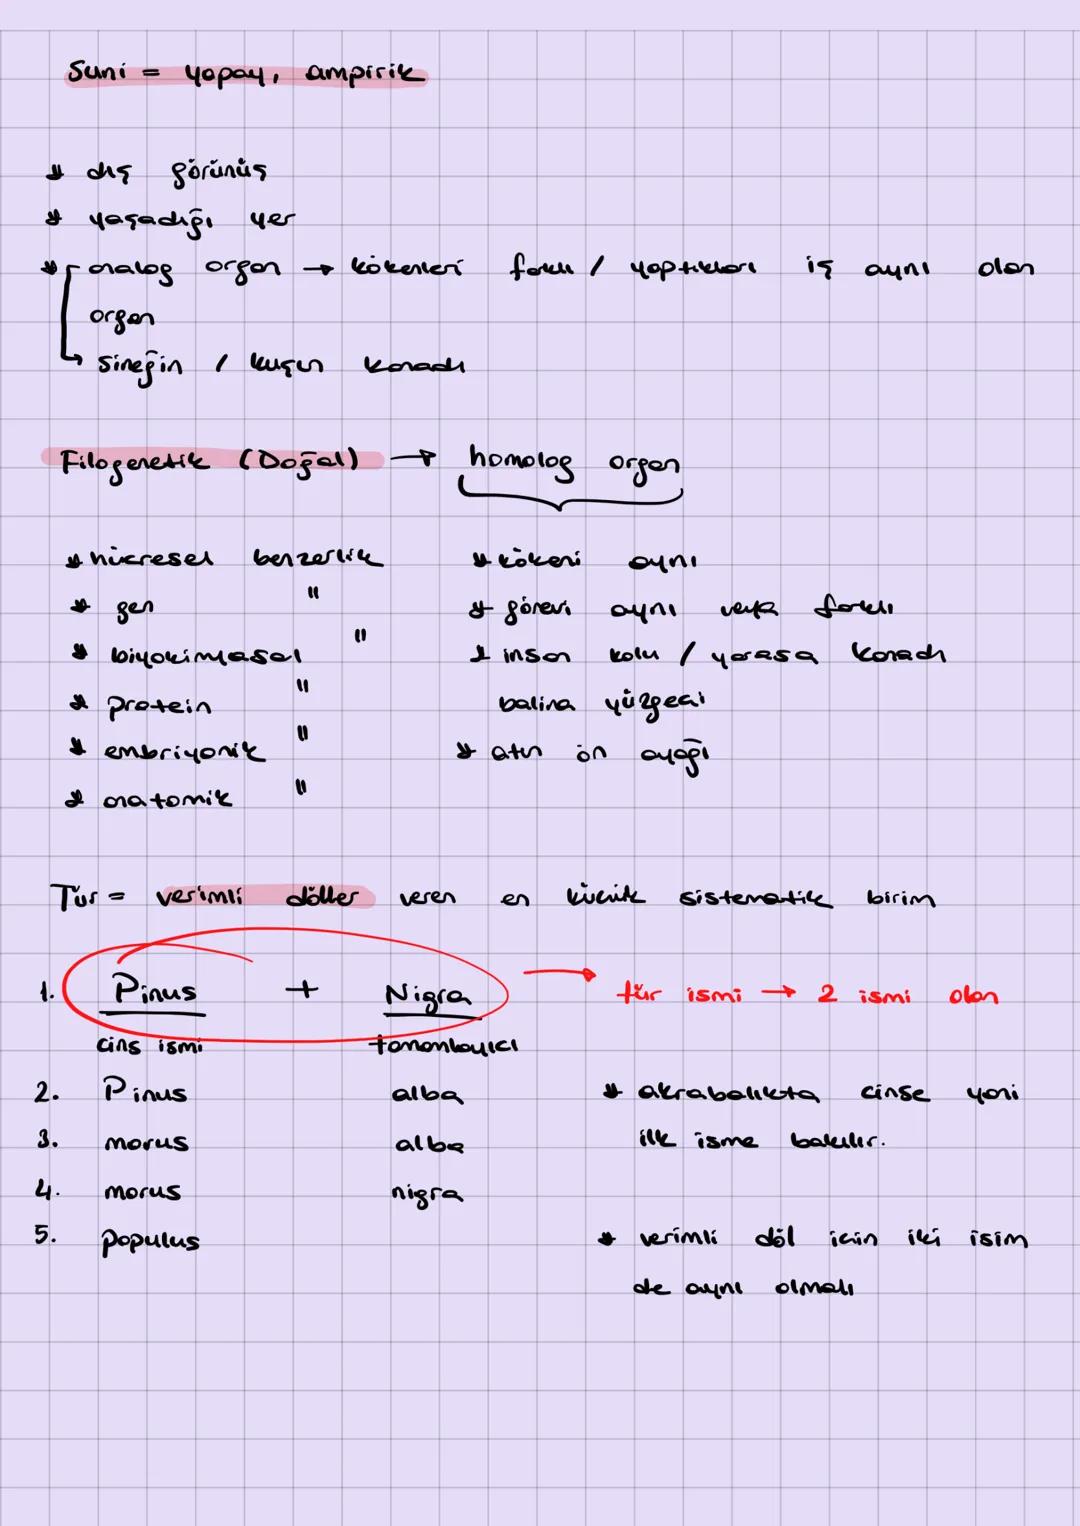 Suni = yapay, ampirik
* dış görünüş
* yaşadığı yer
* analog organ → kökenleri farklı / yaptıkları iş aynı olan
organ
↳ sineğin / kuşun kanadı
Filogenetik (Doğal) → homolog organ
* hücresel benzerlik
* gen "
* biyokimyasal "
* protein "
* embriyonik "
* anatomik "
* kökeni aynı
* görevi aynı veya farklı
* insan kolu / yarasa kanadı
balina yüzgeci
* atın ön ayağı
Tür = verimli döller veren en küçük sistematik birim
1. Pinus + Nigra → tür ismi → 2 ismi olan
cins ismi tamamlayıcı
2. Pinus alba
3. morus alba
4. morus nigra
5. populus
* akrabalıkta cinse yani
ilk isme bakılır.
* verimli döl için iki isim
de aynı olmalı